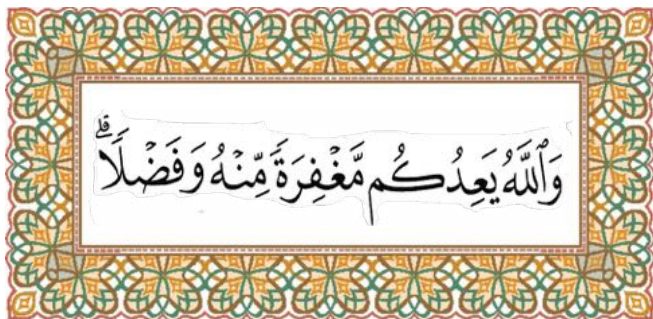 وَٱللَّهُ يَعِدُكُم مَّغْفِرَةً مِّنْهُ وَفَضْلًا ۗ